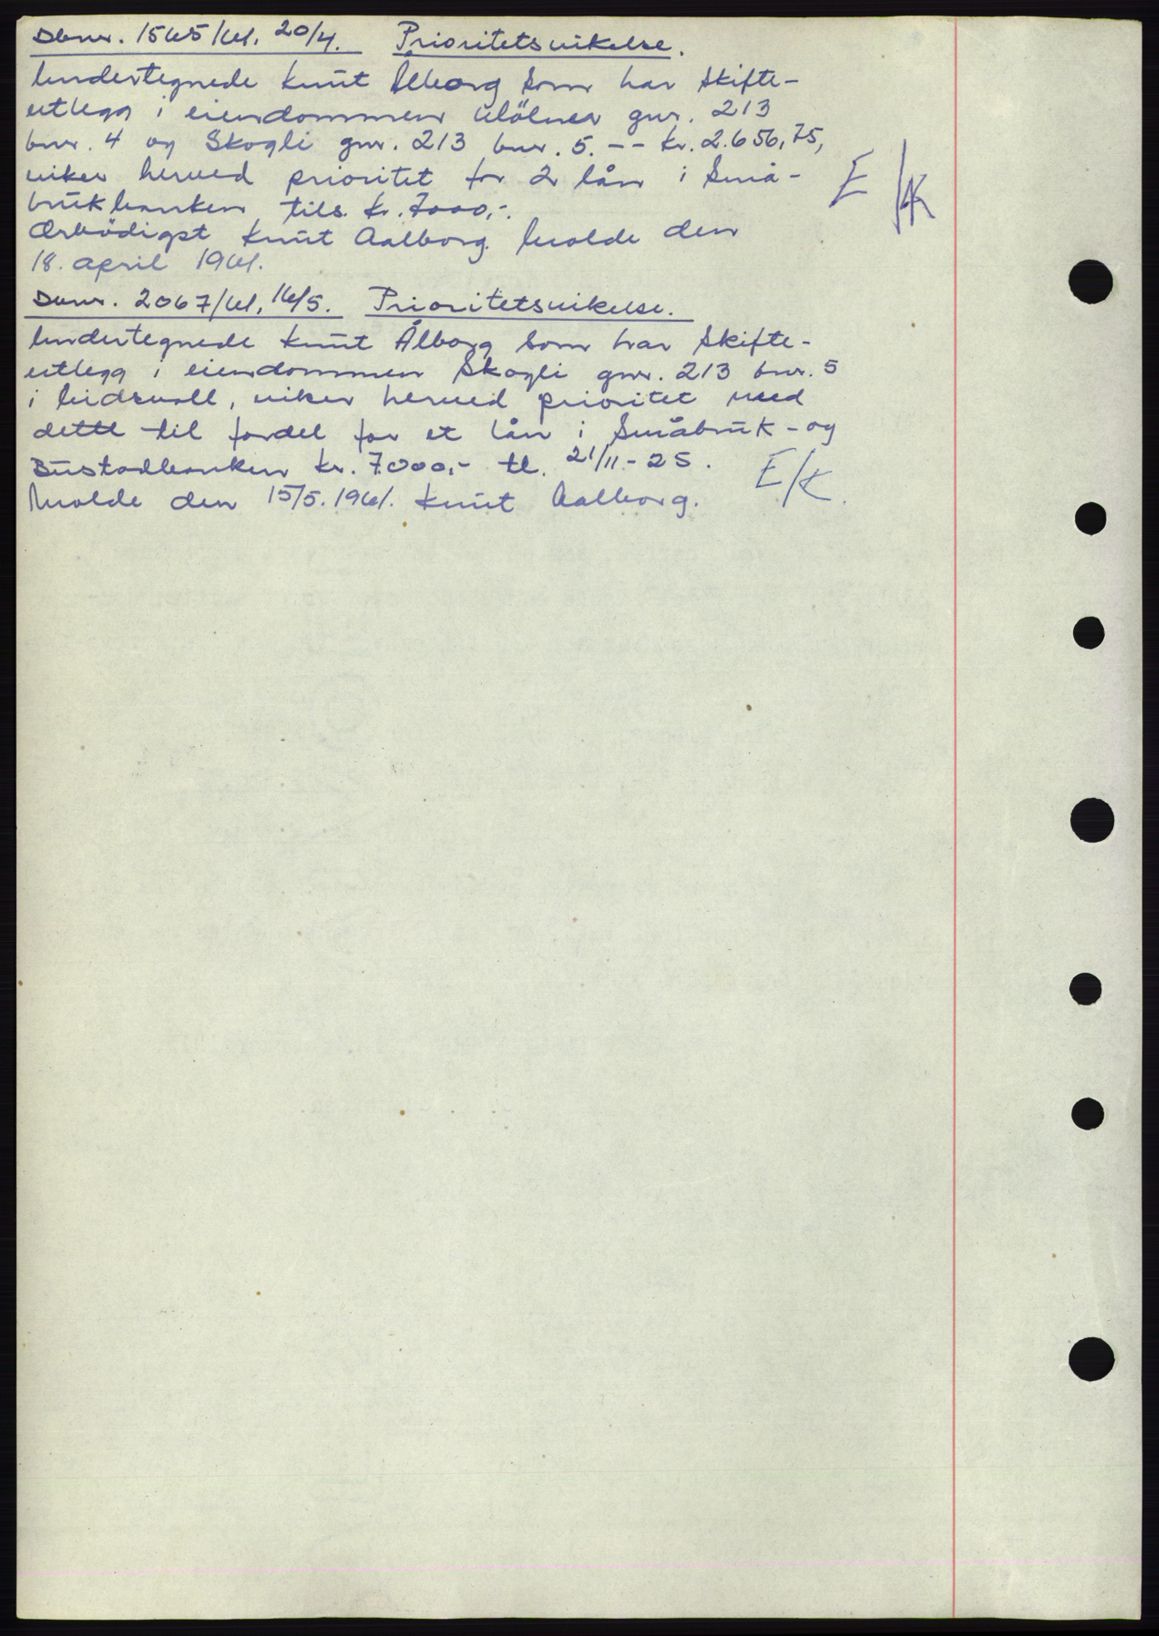 Dbnr. 1565/61. 20/4. Prioritetsvikelse.
Undertegnede Knut Ålborg som har skifte-
utlegg i eiendommen gnr. 213
bnr. 4 og Skogli gnr. 213 bnr. 5. -- kr. 2.656,75,
viker herved prioritet for 2 lån i Små-
brukbanken tils. kr. 7000,-.
Ærbödigst Knut Aalborg. Molde den
18. april 1961.
E/K
Dbnr. 2067/61, 16/5. Prioritetsvikelse.
Undertegnede Knut Ålborg som har skifte-
utlegg i eiendommen Skogli gnr. 213 bnr. 5
i Eidsvåll, viker herved prioritet med
dette til fordel for et lån i Småbruk- og
Bustadbanken kr. 7.000,- tl. 21/11-25.
Molde den 15/5. 1961. Knut Aalborg.
E/K.